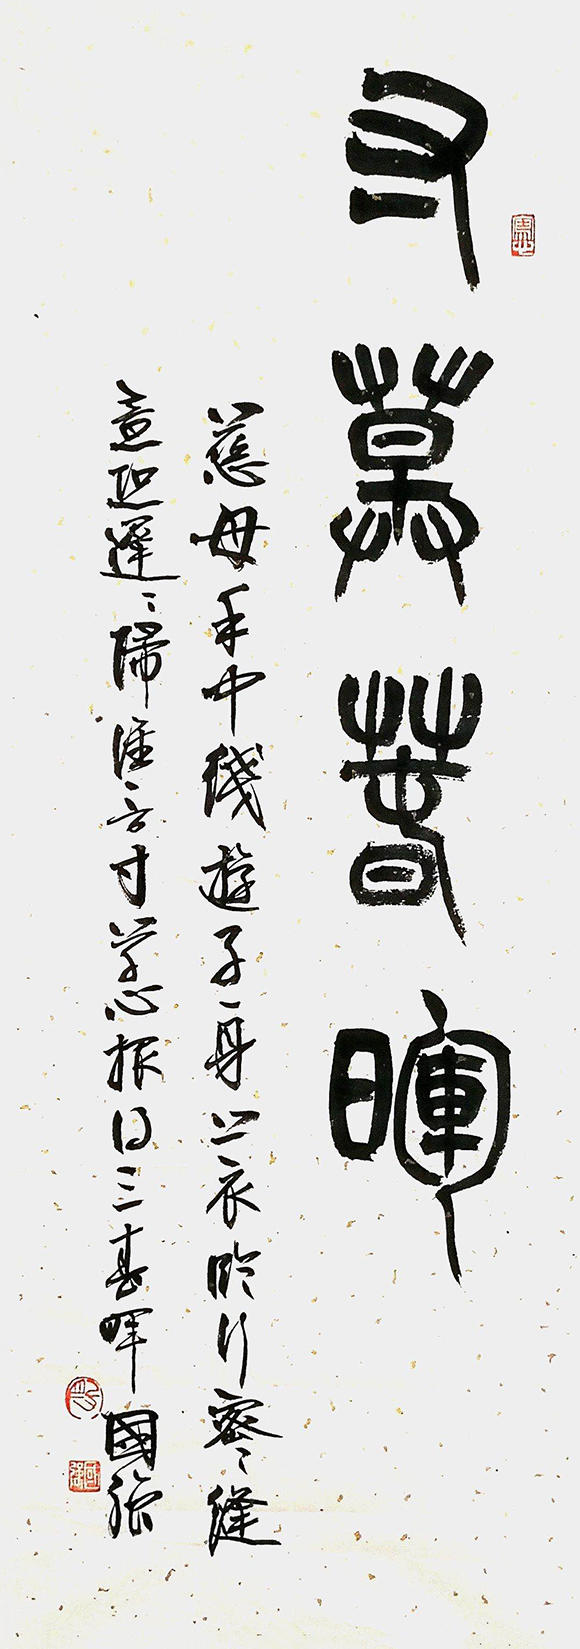 寸草春暉
慈母手中綫遊子身上衣臨行密〻縫
意恐遲〻歸誰言寸草心報得三春暉 國強